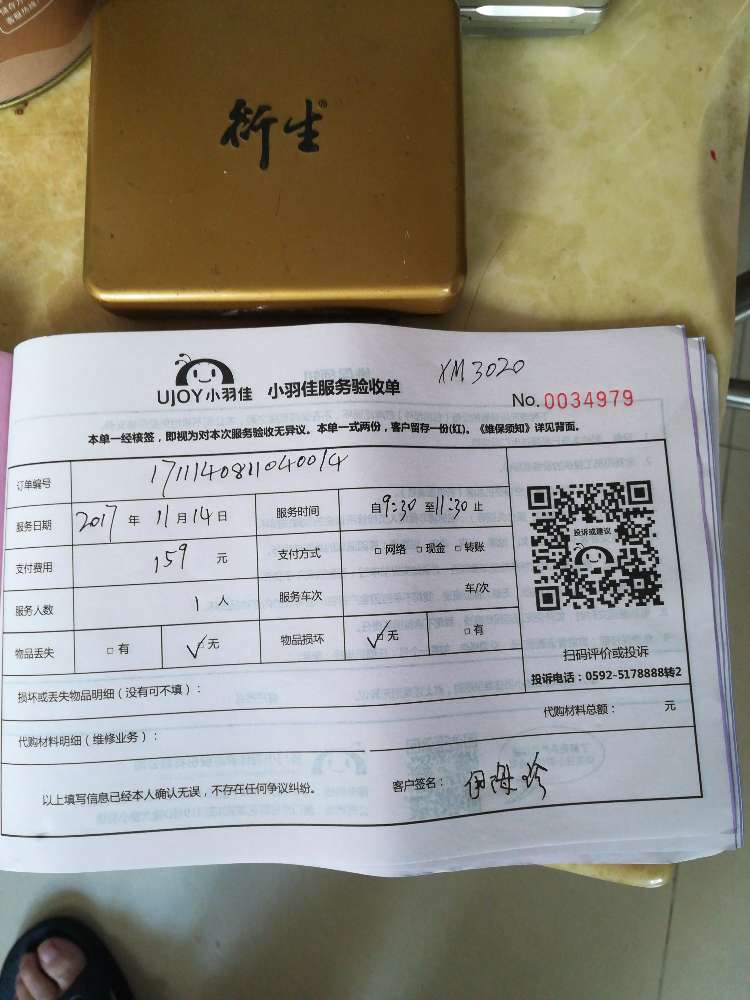 衍生®
UJOY小羽佳 小羽佳服务验收单
XM3020
No.0034979
本单一经核签，即视为对本次服务验收无异议。本单一式两份，客户留存一份(红)。《维保须知》详见背面。
订单编号 1711140811040014
服务日期 2017 年 11 月 14 日 服务时间 自9:30至11:30止
支付费用 159 元 支付方式 □网络 □现金 □转账
服务人数 1 人 服务车次 车/次
物品丢失 □有 ✓□无 物品损坏 ✓□无 □有
投诉或建议
扫码评价或投诉
投诉电话：0592-5178888转2
损坏或丢失物品明细（没有可不填）：
代购材料总额： 元
代购材料明细（维修业务）：
以上填写信息已经本人确认无误，不存在任何争议纠纷。
客户签名：